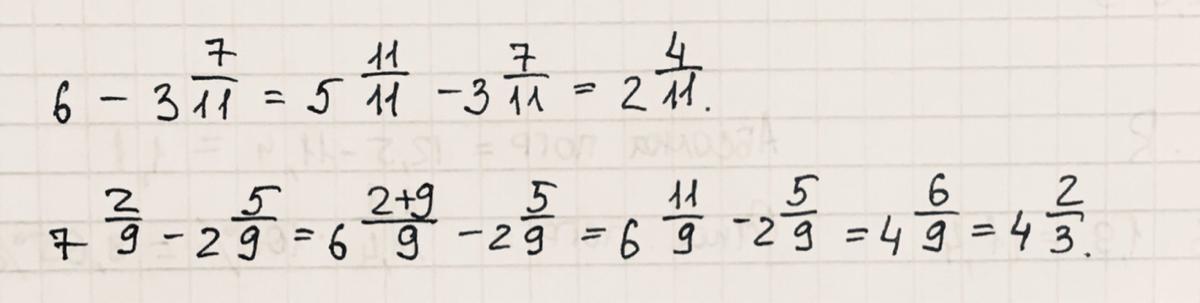 6 - 3 7/11 = 5 11/11 - 3 7/11 = 2 4/11.
7 2/9 - 2 5/9 = 6 2+9/9 - 2 5/9 = 6 11/9 - 2 5/9 = 4 6/9 = 4 2/3.